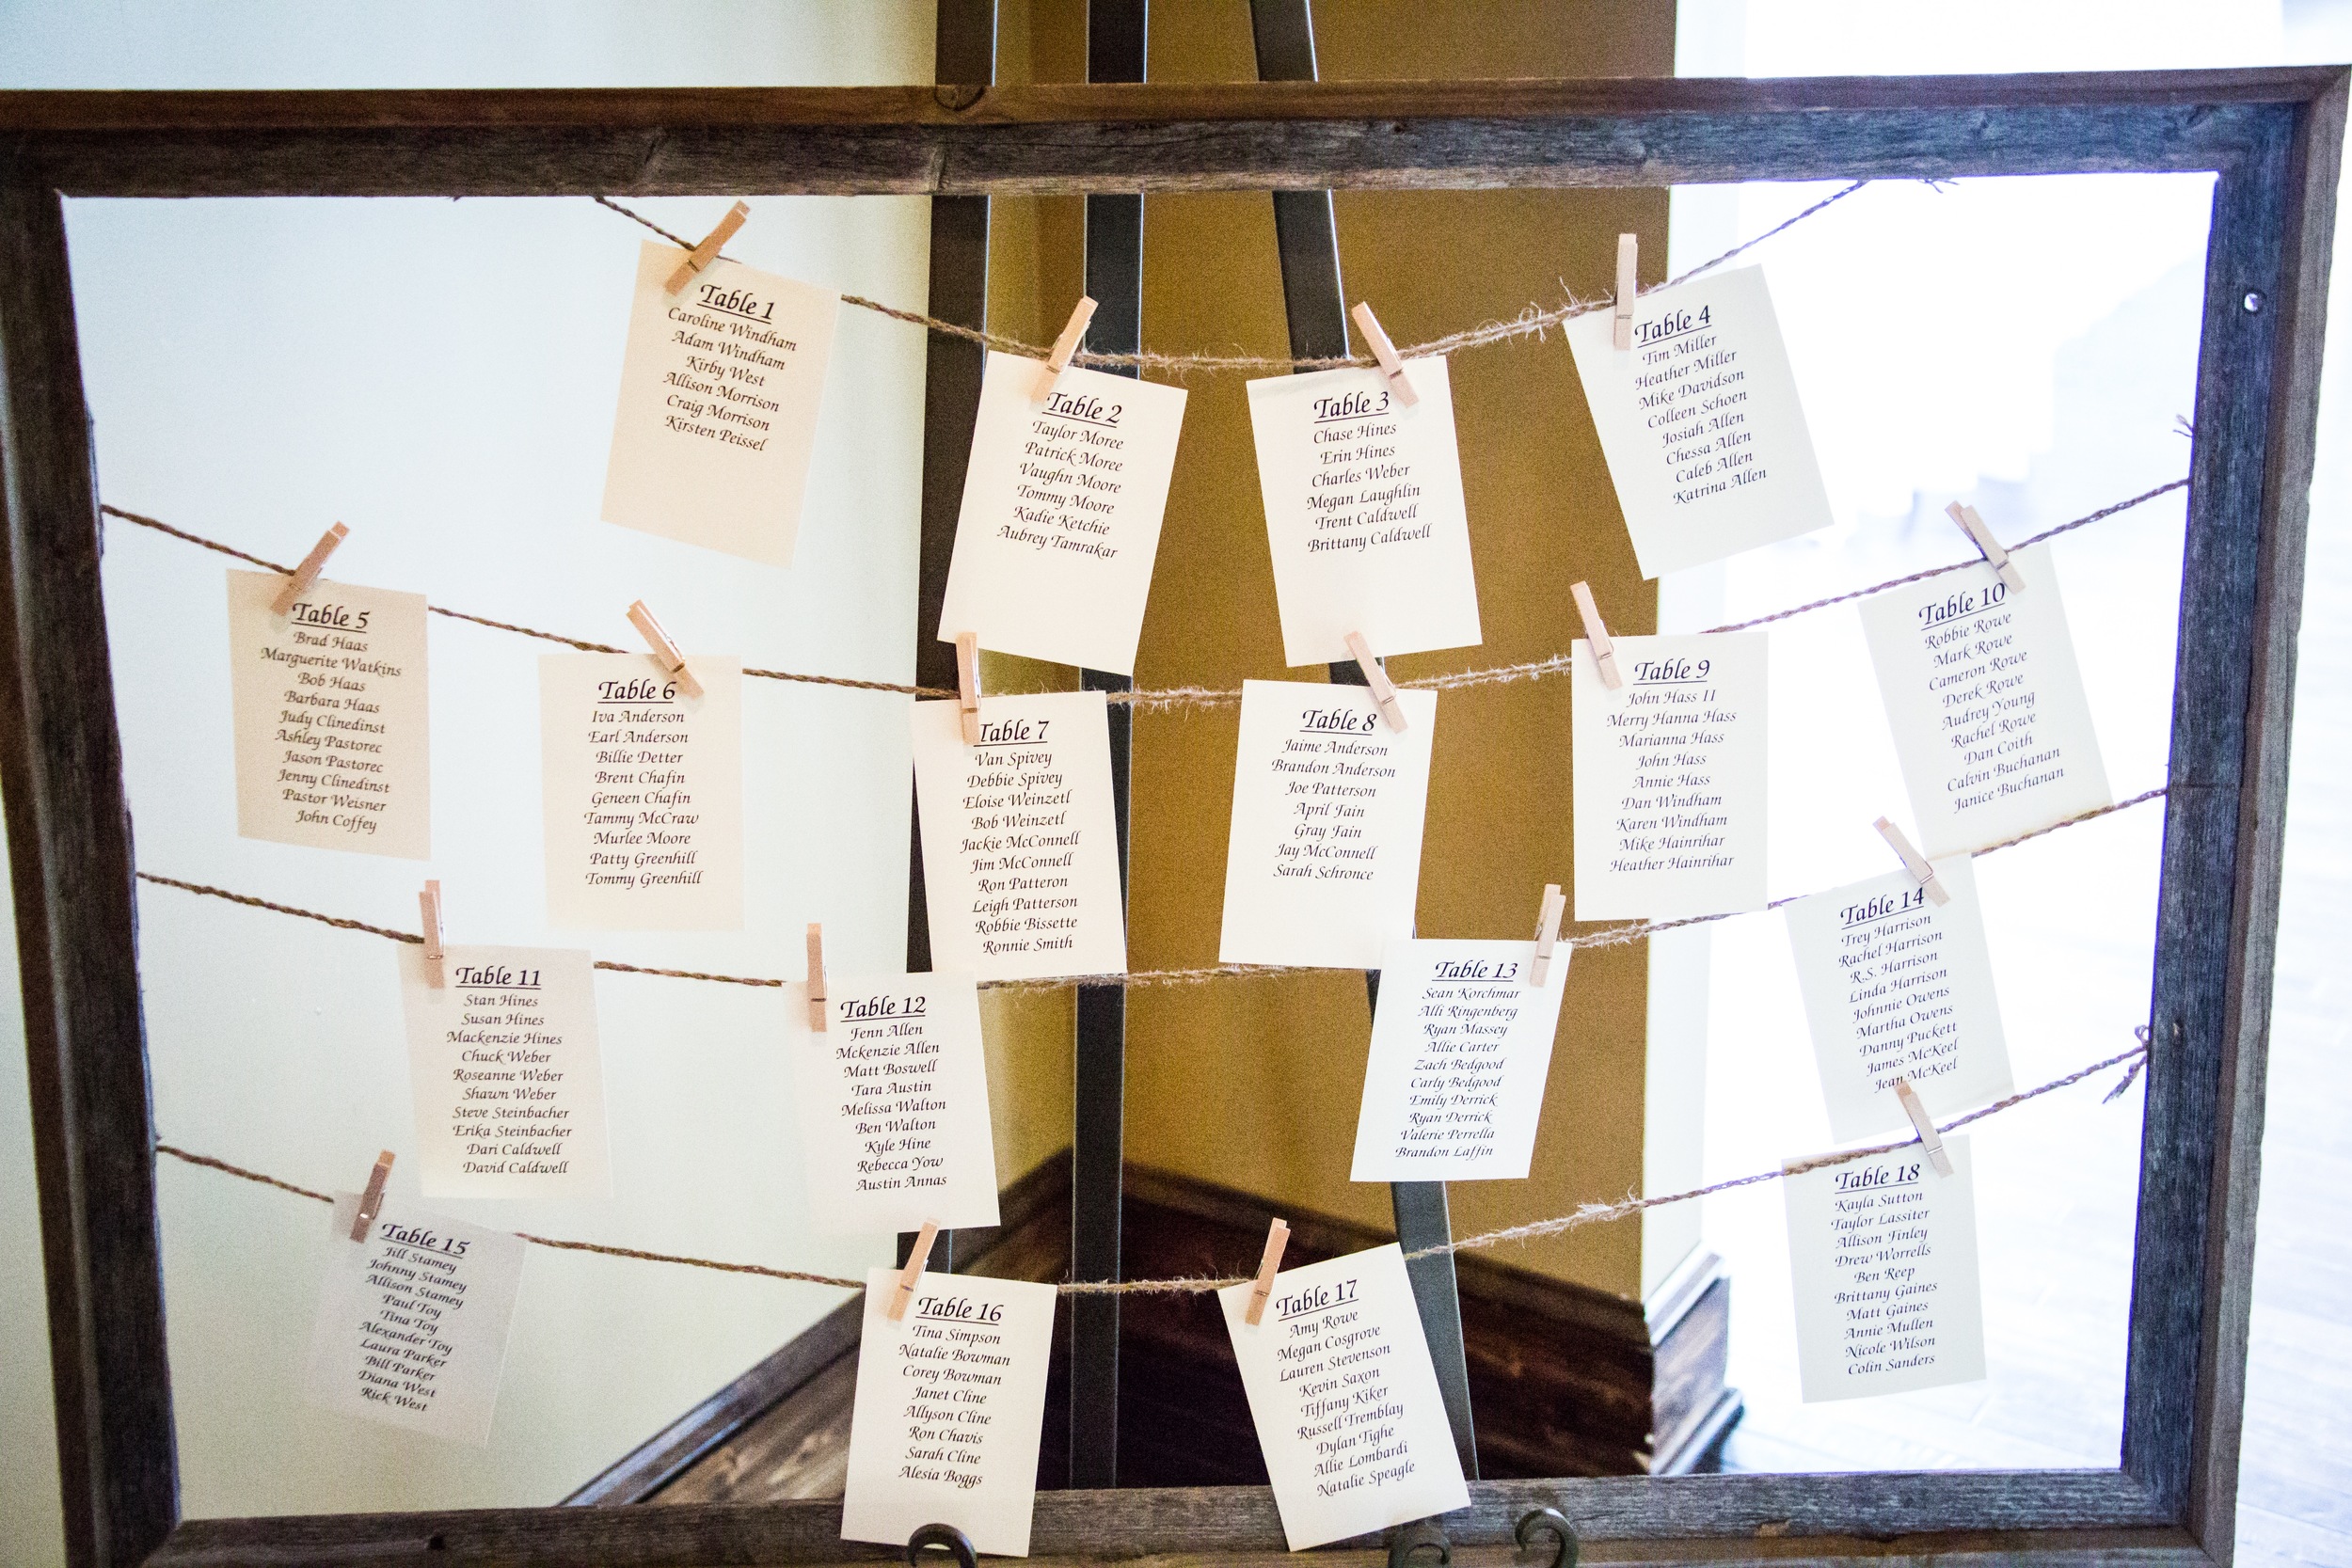 Table 1
Caroline Windham
Adam Windham
Kirby West
Allison Morrison
Craig Morrison
Kirsten Peissel
Table 2
Taylor Moree
Patrick Moree
Vaughn Moore
Tommy Moore
Kadie Ketchie
Aubrey Tamrakar
Table 3
Chase Hines
Erin Hines
Charles Weber
Megan Laughlin
Trent Caldwell
Brittany Caldwell
Table 4
Tim Miller
Heather Miller
Mike Davidson
Colleen Schoen
Josiah Allen
Chessa Allen
Caleb Allen
Katrina Allen
Table 5
Brad Haas
Marguerite Watkins
Bob Haas
Barbara Haas
Judy Clinedinst
Ashley Pastorec
Jason Pastorec
Jenny Clinedinst
Pastor Weisner
John Coffey
Table 6
Iva Anderson
Earl Anderson
Billie Detter
Brent Chafin
Geneen Chafin
Tammy McCraw
Murlee Moore
Patty Greenhill
Tommy Greenhill
Table 7
Van Spivey
Debbie Spivey
Eloise Weinzetl
Bob Weinzetl
Jackie McConnell
Jim McConnell
Ron Patteron
Leigh Patterson
Robbie Bissette
Ronnie Smith
Table 8
Jaime Anderson
Brandon Anderson
Joe Patterson
April Fain
Gray Fain
Jay McConnell
Sarah Schronce
Table 9
John Hass II
Merry Hanna Hass
Marianna Hass
John Hass
Annie Hass
Dan Windham
Karen Windham
Mike Hainrihar
Heather Hainrihar
Table 10
Robbie Rowe
Mark Rowe
Cameron Rowe
Derek Rowe
Audrey Young
Rachel Rowe
Dan Coith
Calvin Buchanan
Janice Buchanan
Table 11
Stan Hines
Susan Hines
Mackenzie Hines
Chuck Weber
Roseanne Weber
Shawn Weber
Steve Steinbacher
Erika Steinbacher
Dari Caldwell
David Caldwell
Table 12
Fenn Allen
Mckenzie Allen
Matt Boswell
Tara Austin
Melissa Walton
Ben Walton
Kyle Hine
Rebecca Yow
Austin Annas
Table 13
Sean Korchmar
Alli Ringenberg
Ryan Massey
Allie Carter
Zach Bedgood
Carly Bedgood
Emily Derrick
Ryan Derrick
Valerie Perrella
Brandon Laffin
Table 14
Trey Harrison
Rachel Harrison
R.S. Harrison
Linda Harrison
Johnnie Owens
Martha Owens
Danny Puckett
James McKeel
Jean McKeel
Table 15
Jill Stamey
Johnny Stamey
Allison Stamey
Paul Toy
Tina Toy
Alexander Toy
Laura Parker
Bill Parker
Diana West
Rick West
Table 16
Tina Simpson
Natalie Bowman
Corey Bowman
Janet Cline
Allyson Cline
Ron Chavis
Sarah Cline
Alesia Boggs
Table 17
Amy Rowe
Megan Cosgrove
Lauren Stevenson
Kevin Saxon
Tiffany Kiker
Russell Tremblay
Dylan Tighe
Allie Lombardi
Natalie Speagle
Table 18
Kayla Sutton
Taylor Lassiter
Allison Finley
Drew Worrells
Ben Reep
Brittany Gaines
Matt Gaines
Annie Mullen
Nicole Wilson
Colin Sanders